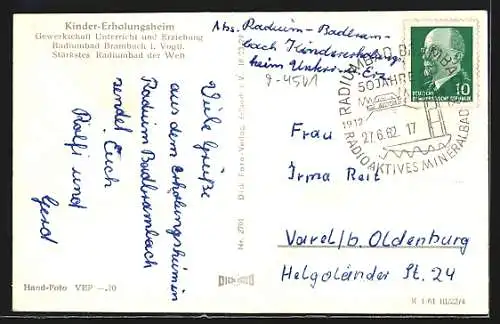 Kinder-Erholungsheim
Gewerkschaft Unterricht und Erziehung
Radiumbad Brambach i. Vogtl.
Stärkstes Radiumbad der Welt
Abs. Radium-Badbram-
bach Kindererholung
heim Unterr. u. Erz.
9-45V1
10
DEUTSCHE
DEMOKRATISCHE REPUBLIK
RADIUMBAD BRAMBACH
50 JAHRE
1912
27.6.62.17
RADIOAKTIVES MINERALBAD
Viele Grüße
aus dem Erholungsheim in
Radium Badbrambach
sendet Euch
Rolfi und
Gerd
Dick Foto-Verlag, Erlbach i. V.
Nr. 2701
DICK FOTO
Frau
Irma Reit
Varel/b. Oldenburg
Helgoländer St. 24
Hand-Foto VEP -.20
R 1/61 III/22/4